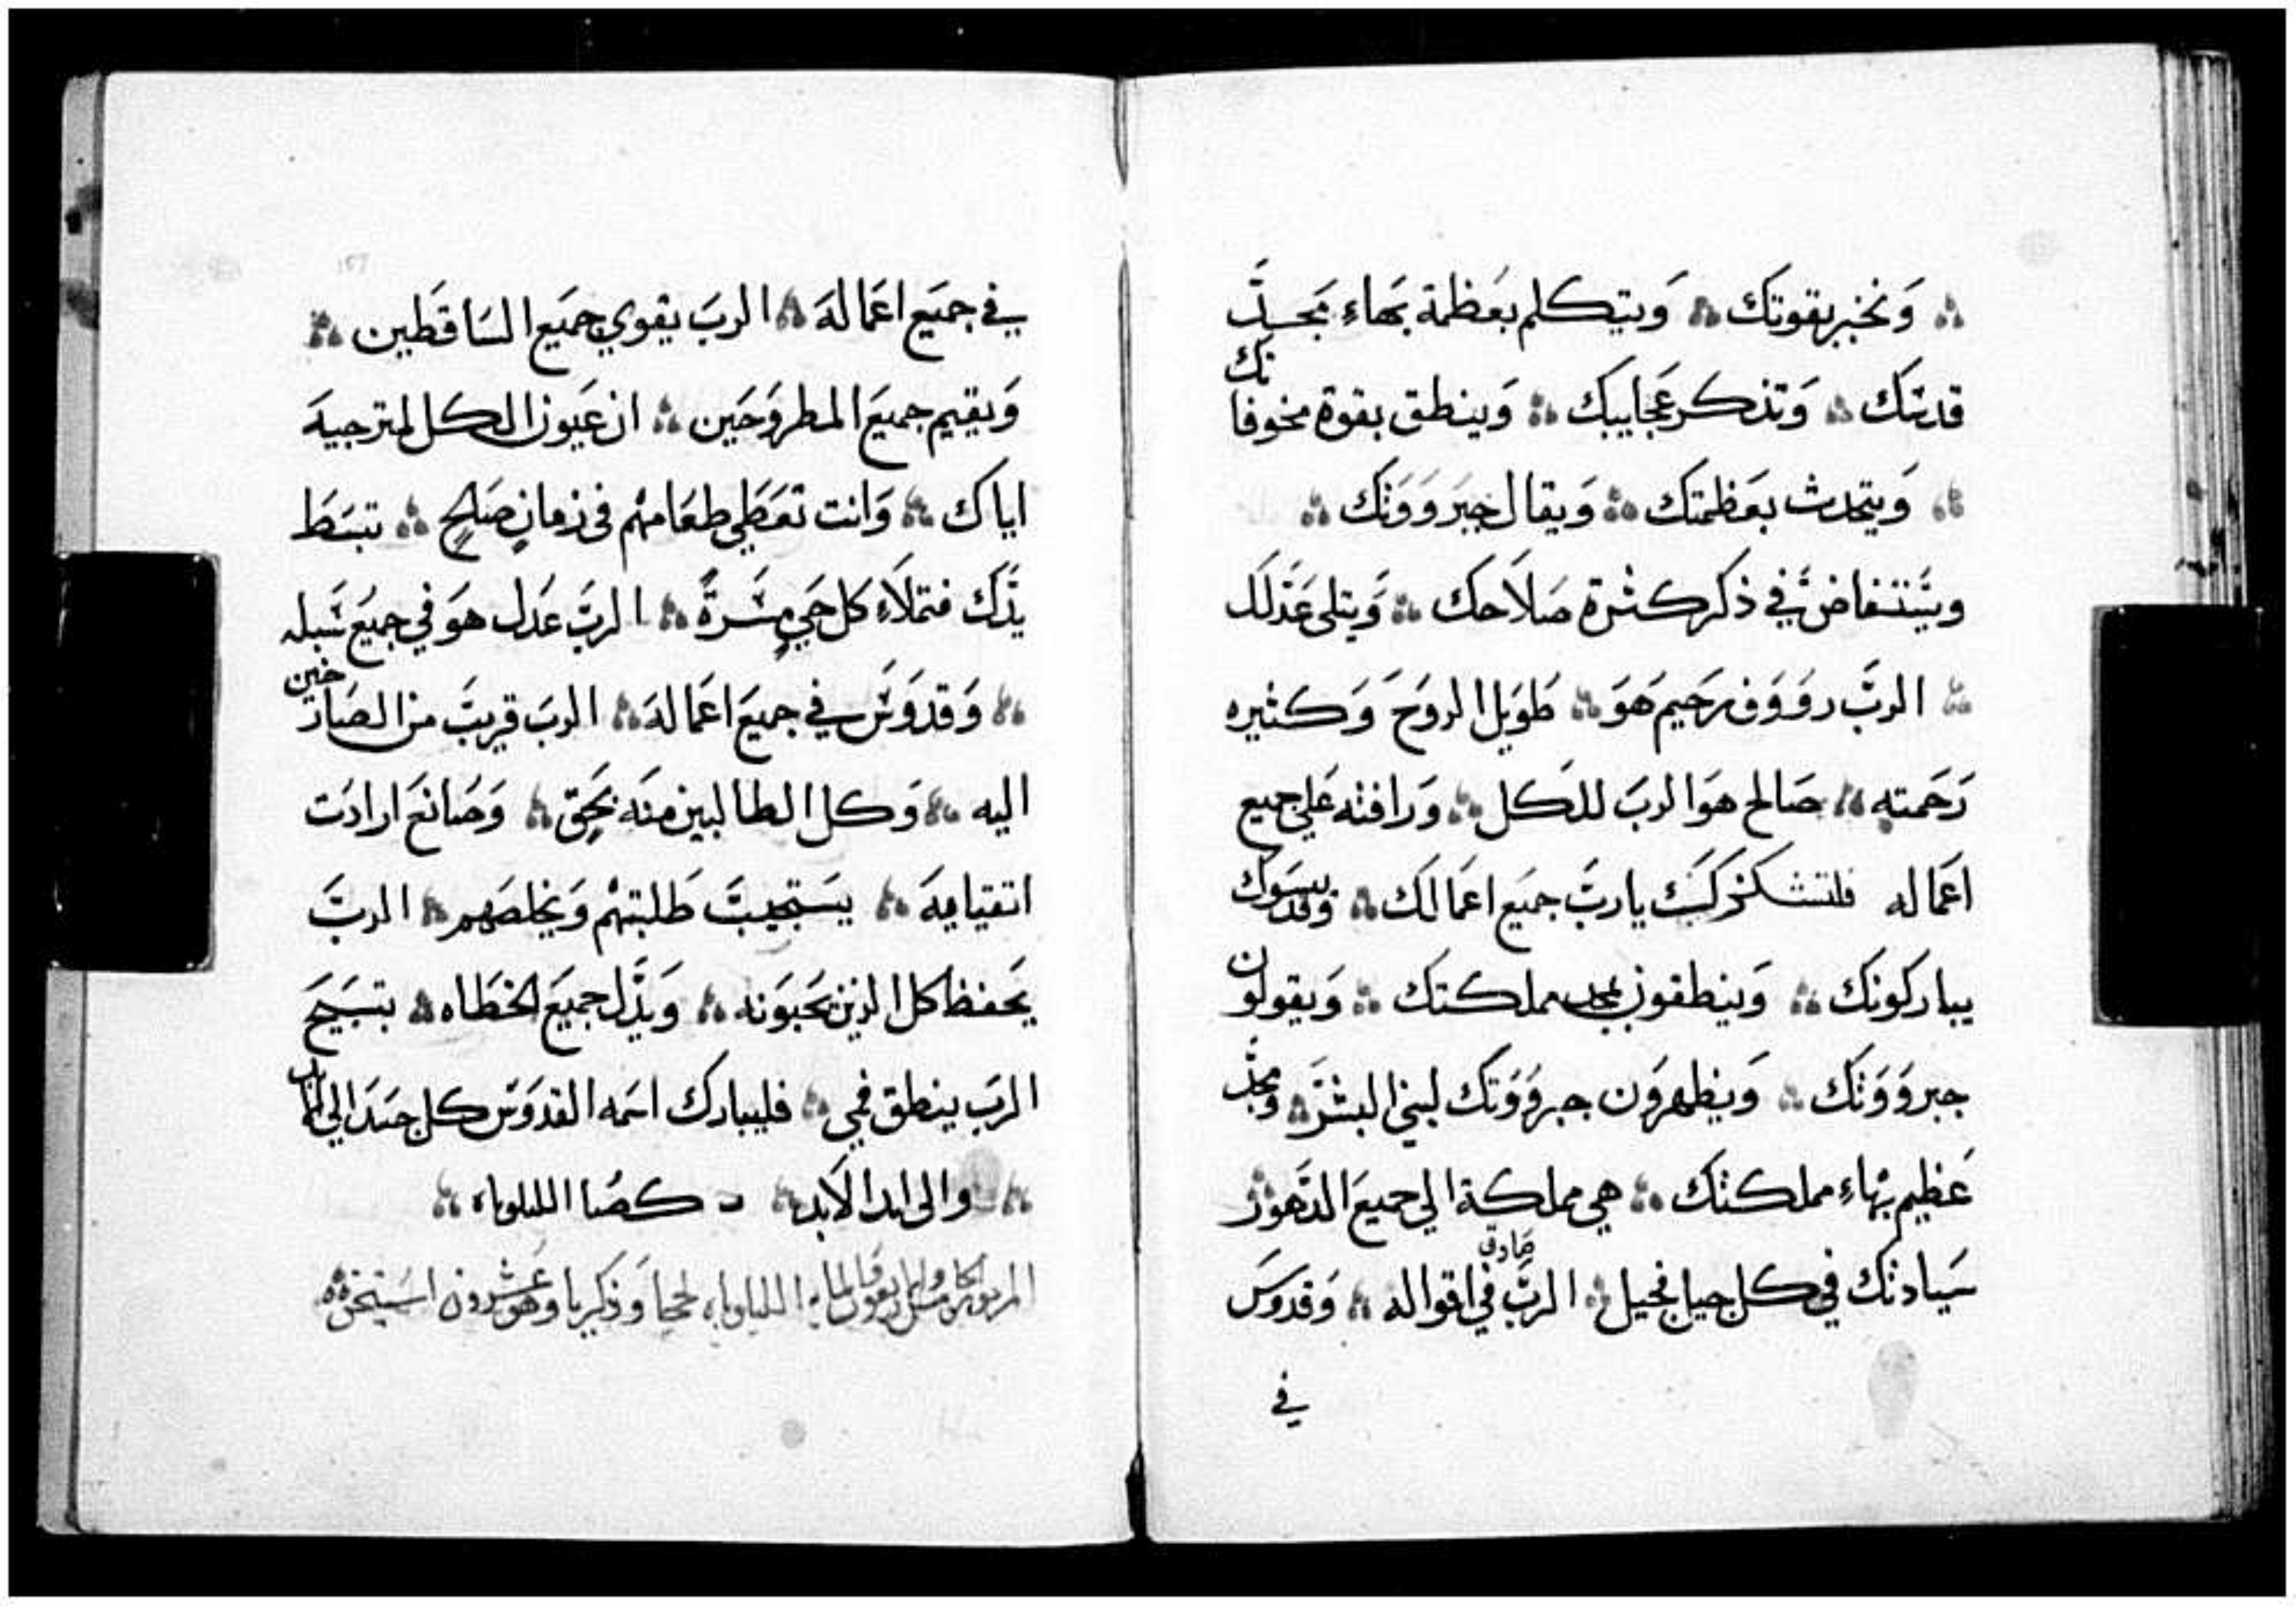 وَنخبر بقوتك وَيتكلم بعَظمة بهَاءِ مَجدِ
قدستك وَتذكر عَجايبك وَينطق بقوة مخوفاتك
وَيتحدث بعَظمتك وَيقال جبَروَوَتك
ويَستفاضَ في ذكر كثرة صَلاَحك وَيتلى عَدَلك
الربَّ رووَف رَحيم هَوَ طَوَيل الروَحَ وَكثيره
رَحَمته صَالح هوَ الربَ للكل وَرافته عَلي جميع
اعَماله فلتشكرك يا ربَّ جميَع اعَمالك وَقديسَوك
يباركونك وَينطقون بمجد مملكتك وَيقولون
جبروَوَتك وَيظهروَن جبروَوَتك لبني البشرَ ومجد
عَظيم بهَاءِ مملكتك هي مملكة الي جميعَ الدَهوَر
سَيادتك في كل جيل فجيل الربَّ صَادق في اقواله وَقدوسَ
في
في جميَع اعَمالهَ الربَ يقوي جميَع السَاقَطين
وَيقيم جميعَ المطروَحَين ان عَيون الكل لمترجيهَ
اياك وَانت تعَطَي طعَامهُم في زمانٍ صَالحٍ تبسَطَ
يدَّك فتملاَءِ كل حَيٍ مسَرةً الربَّ عَدل هوَ في جميَع سَبله
وَقدوَسَ في جميعَ اعَمالهَ الربَ قريبَّ من الصَارخين
اليه وَكل الطالبين منهَ بحَقٍ وَصَانعَ ارادَت
اتقيايهَ يسَتجيبَّ طَلبتهُم وَيخلصَهم الربَّ
يَحفظ كل الذين يَحبوَنه وَيذَل جميَع الخطَاه بتسَبيَحَ
الربَ ينطق فمي فليبارك اسَمه القدوَسَ كل جسَدَ الي الابد
والى ابد الاَبد كصَا الليلوياء
الليلوياء لحجا وَذكريا وهَو عَشروَن استيخنَ